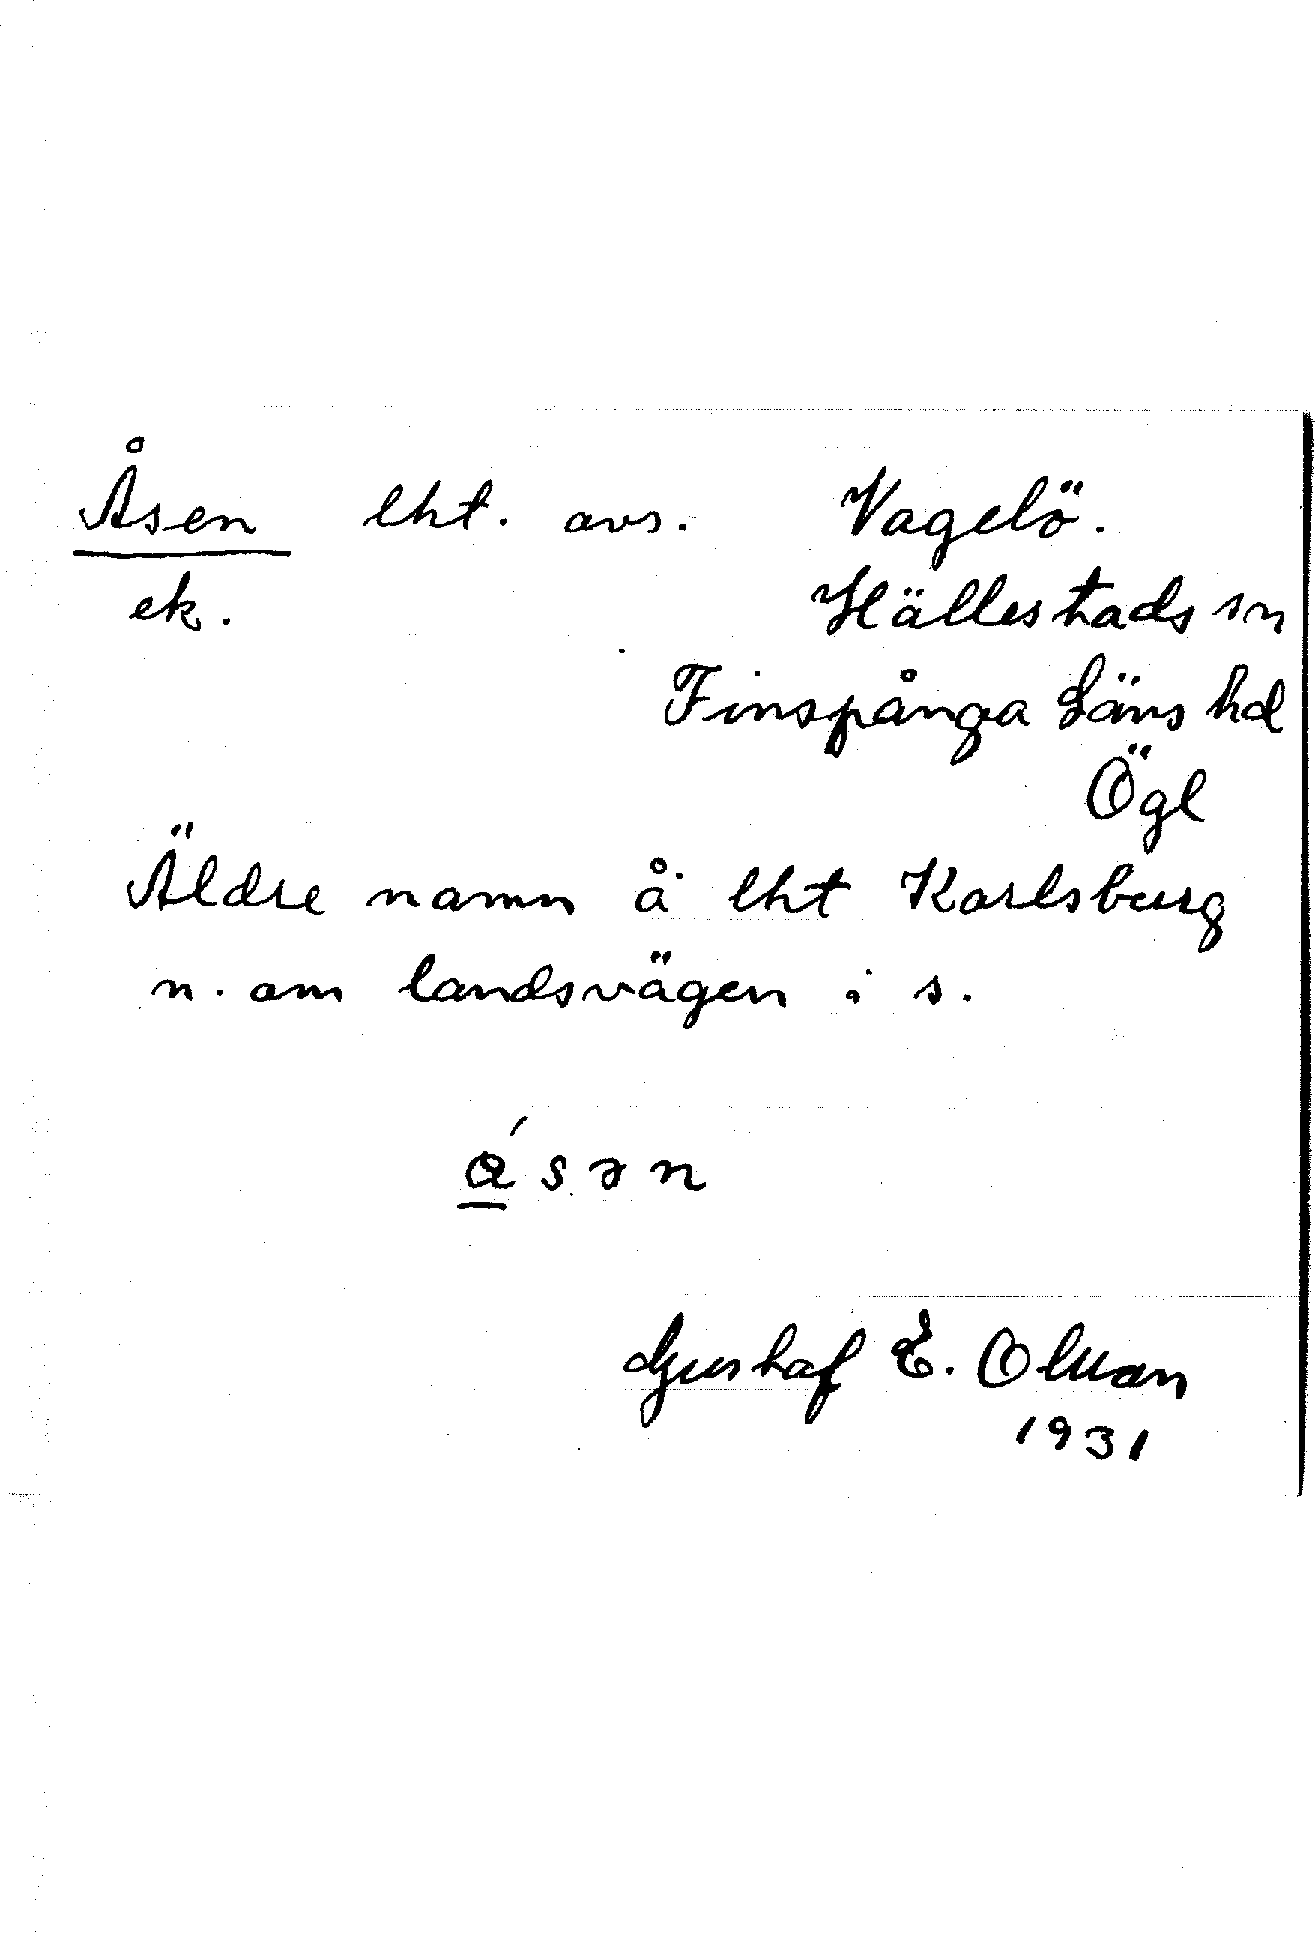 Åsen lht. avs. Vagelö.
ek. Hällestads sn
Finspånga Läns hd
Ögl
Äldre namn å lht Karlsburg
n. om landsvägen i s.
sən
Gustaf E.
1931